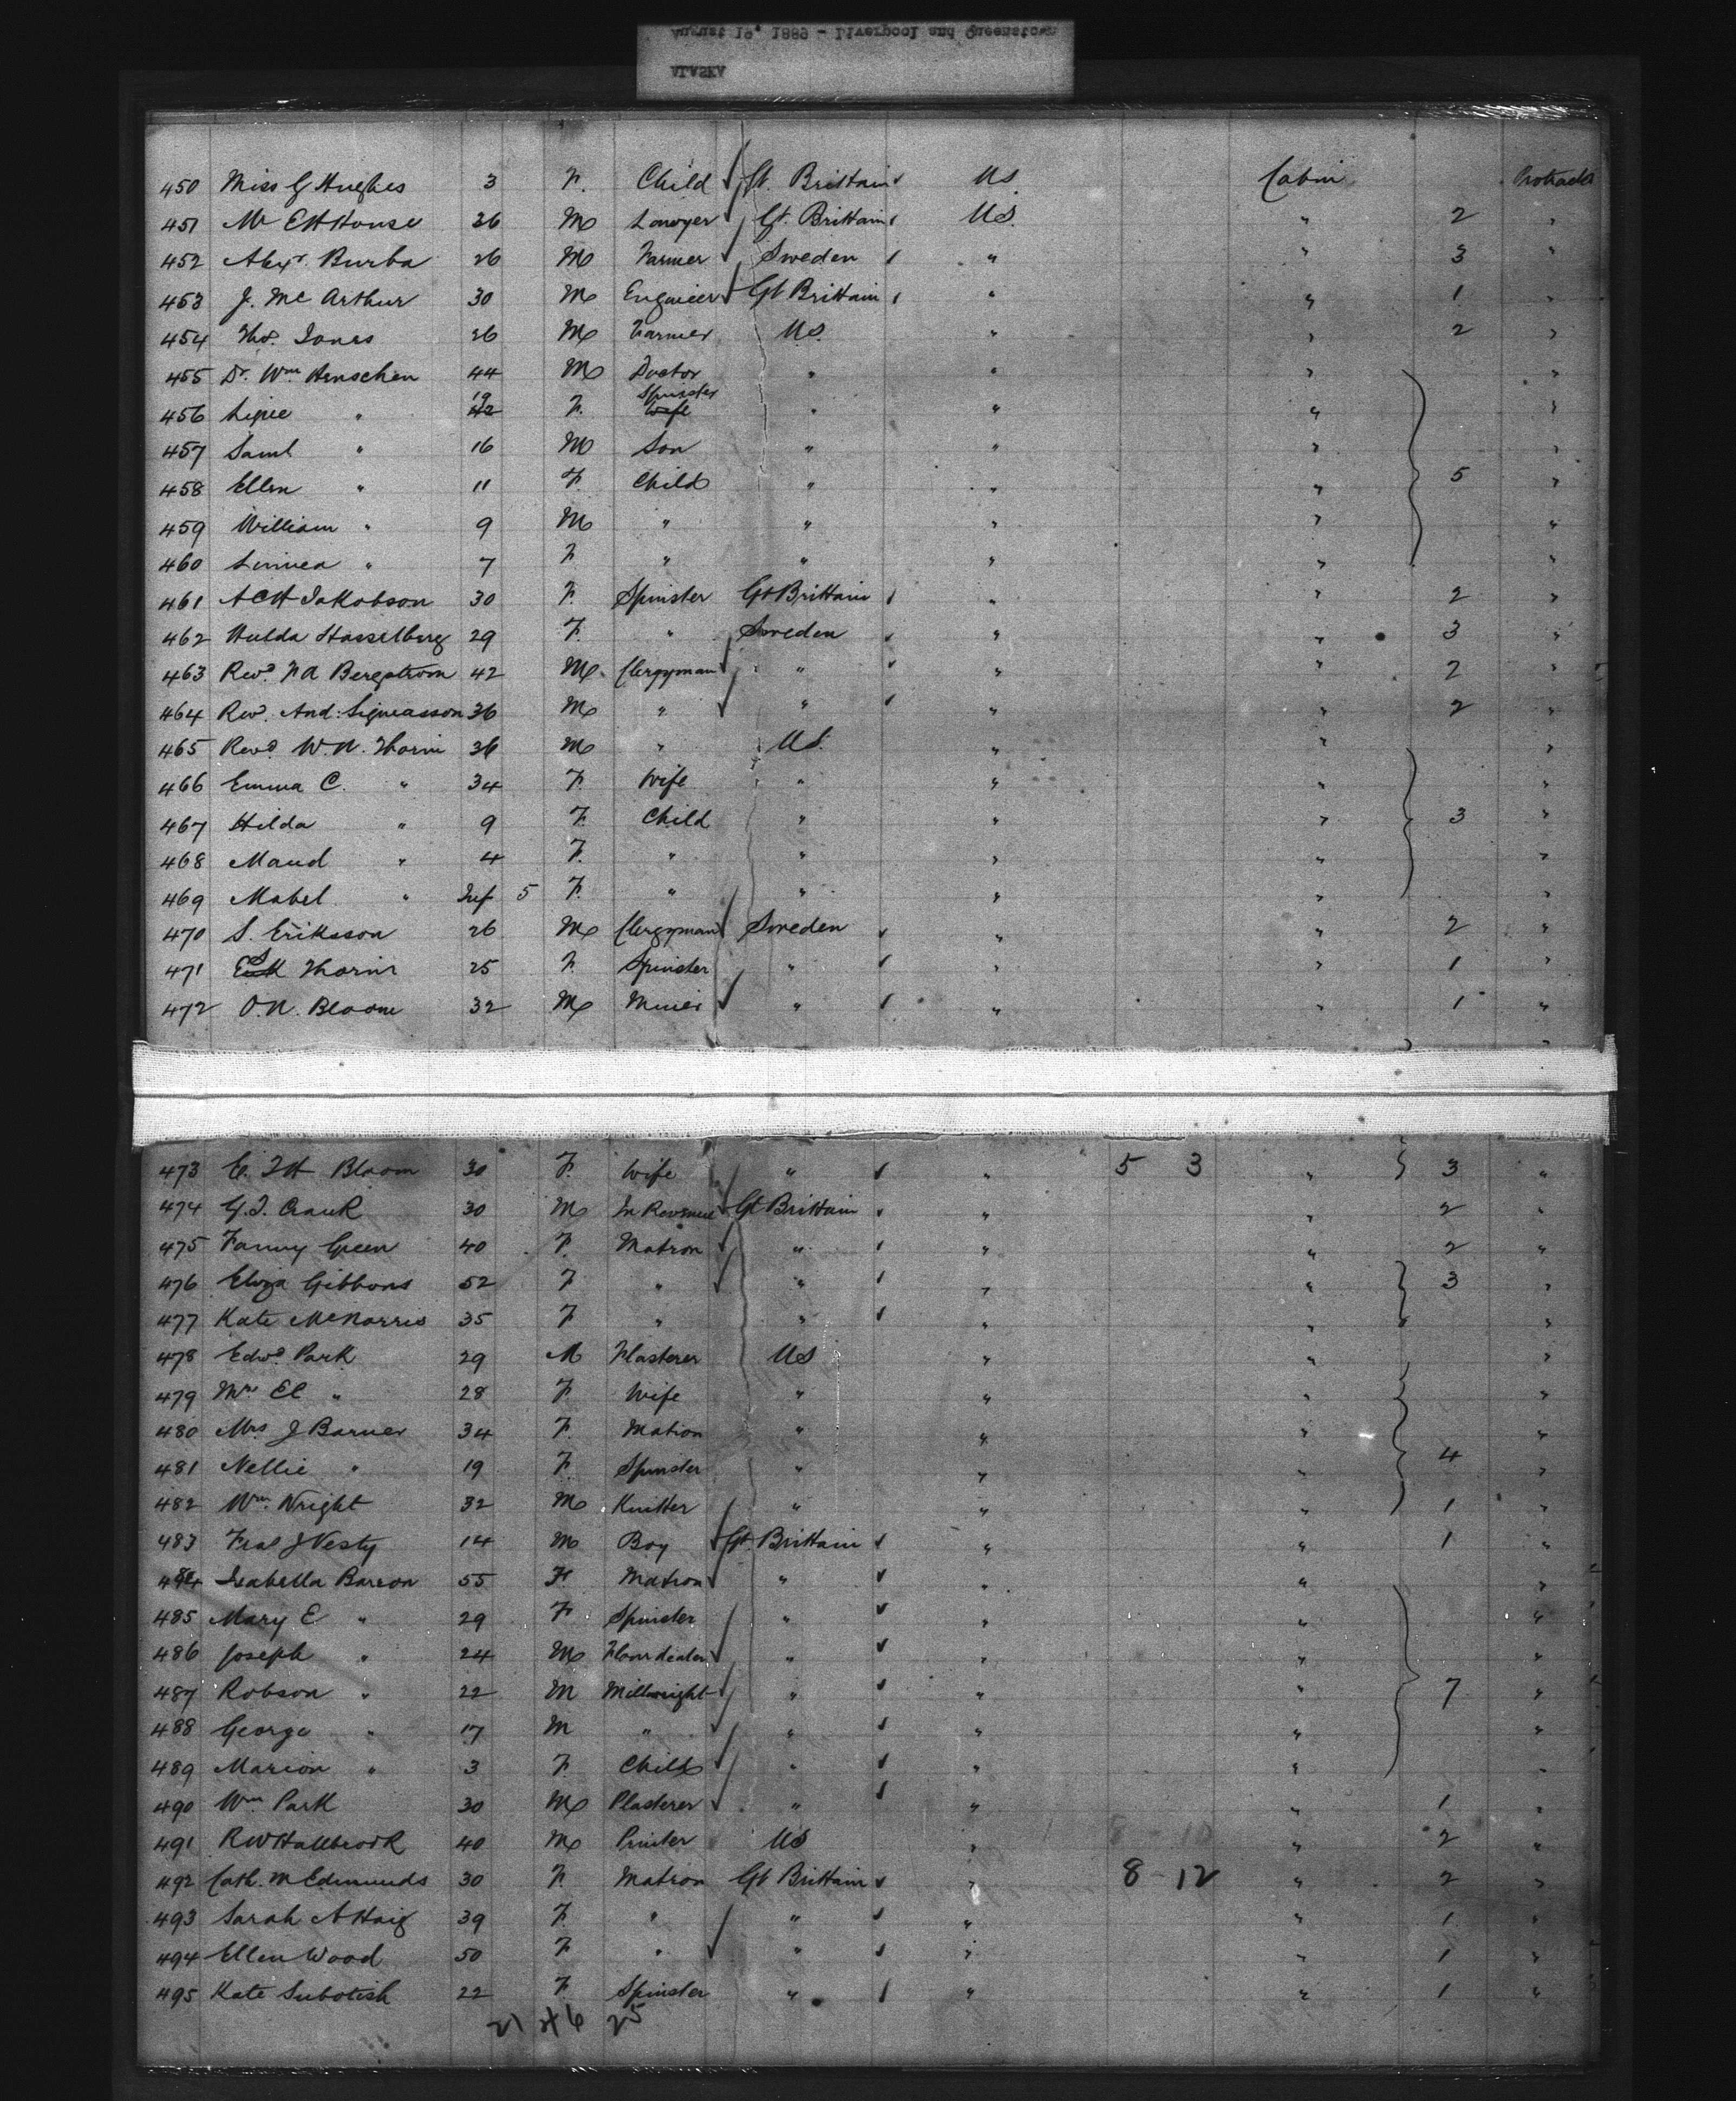 August 19, 1889 - Liverpool and Queenstown
ALASKA
450 Miss G Hughes 3 F. Child Gt. Brittain US Cabin Protracted
451 Mr E H House 36 M Lawyer Gt. Brittain US. " 2 "
452 Alexr. Burba 26 M Farmer Sweden " " 3 "
453 J. Mc Arthur 30 M Engineer Gt Brittain " " 1 "
454 Tho. Jones 26 M Farmer US. " " 2 "
455 Dr. Wm Henschen 44 M Doctor " " " "
456 Signe " 42 19 F. Wife Spinster " " " "
457 Saml " 16 M Son " " " "
458 Ellen " 11 F. Child " " " 5 "
459 William " 9 M " " " " "
460 Linnea " 7 F. " " " " "
461 A C H Jakobson 30 F. Spinster Gt Brittain " " 2 "
462 Hulda Hasselberg 29 F. " Sweden " " 3 "
463 Revd. F A Bergstrom 42 M. Clergyman " " " 2 "
464 Revd. And: 36 M " " " " 2 "
465 Revd. W. N. Thorin 36 M " US. " " "
466 Emma C. " 34 F. Wife " " " "
467 Hilda " 9 F. Child " " " 3 "
468 Maud " 4 F. " " " " "
469 Mabel " Inf 5 F. " " " " "
470 S. Eriksson 26 M Clergyman Sweden " " 2 "
471 Thorin 25 F. Spinster " " " 1 "
472 O. N. Bloom 32 M Miner " " " 1 "
473 E. J H Bloom 30 F. Wife " " 5 3 " 3 "
474 G. J. Crank 30 M In Revenue Gt Brittain " " 2 "
475 Fanny Green 40 F. Matron " " " 2 "
476 Eliza Gibbons 52 F " " " " 3 "
477 Kate McNorris 35 F " " " " "
478 Edwd. Park 29 M Plasterer US " " "
479 Mrs EC " 28 F Wife " " " "
480 Mrs J Barner 34 F. Matron " " " "
481 Nellie " 19 F. Spinster " " " 4 "
482 Wm. Wright 32 M Knitter " " " 1 "
483 J Vesty 14 M Boy Gt. Brittain " " 1 "
484 Isabella Barron 55 F Matron " " " "
485 Mary E " 29 F Spinster " " " "
486 Joseph " 24 M Flour dealer " " " "
487 Robson " 22 M Millwright " " " 7 "
488 George " 17 M " " " " "
489 Marion " 3 F. Child " " " "
490 Wm Park 30 M Plasterer " " " 1 "
491 R W Hallbrook 40 M Printer US " 8 - 10 " 2 "
492 Cath. M Edmunds 30 F. Matron Gt Brittain " 8 - 12 " 2 "
493 Sarah A Haig 39 F. " " " " 1 "
494 Ellen Wood 50 F " " " " 1 "
495 Kate Subotish 22 F. Spinster " " " 1 "
21 46 25